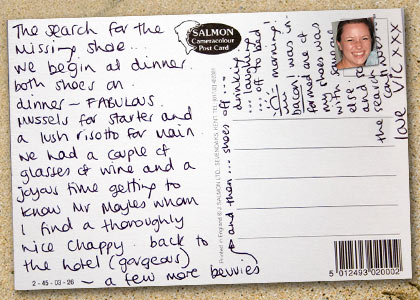 The search for the
missing shoe...
We begin at dinner.
both shoes on.
dinner – FABULOUS.
Mussels for starter and
a lush risotto for main.
We had a couple of
glasses of wine and a
joyous time getting to
know Mr Mayles whom
I find a thoroughly
nice chappy. back to
the hotel (gorgeous)
– a few more bevvies
and then... shoes off...
drinking...
...laughing...
...off to bed
morning!
bacon! was in-
formed one of
my shoes was
with someone
else
the search
love Vic xxx
SALMON
Cameracolour
Post Card
Printed in England © J SALMON LTD., SEVENOAKS, KENT. TEL:
2 - 45 - 03 - 26
5 012493 020002